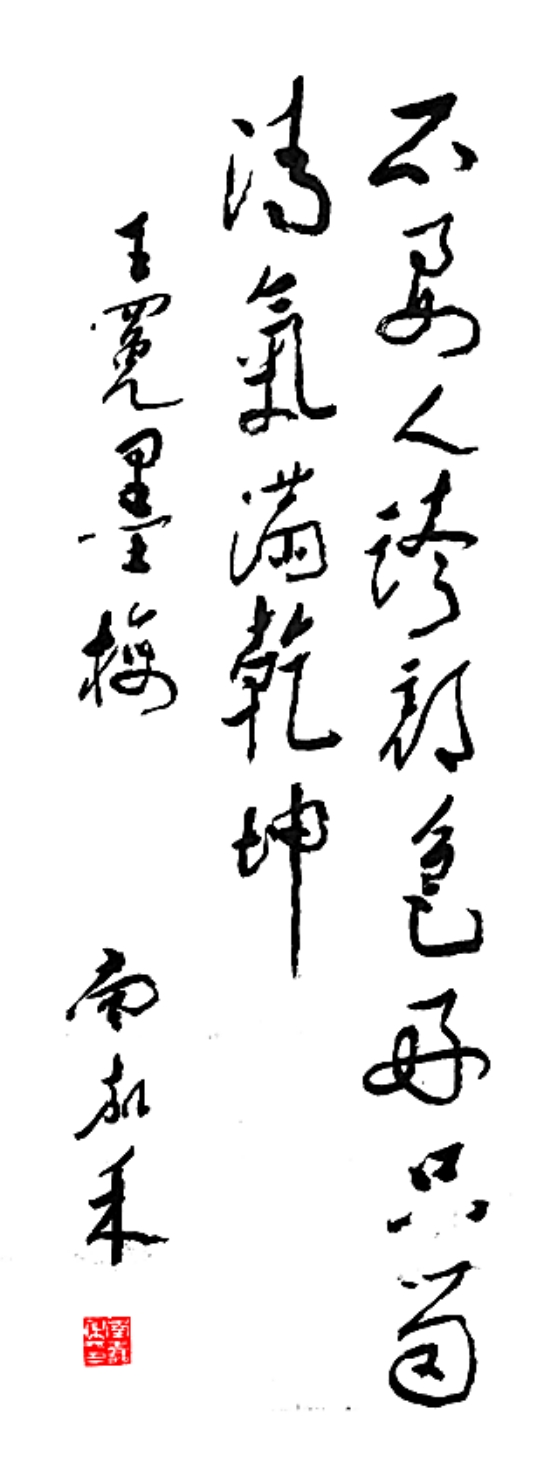 不要人誇顏色好只留
清氣滿乾坤
王冕墨梅